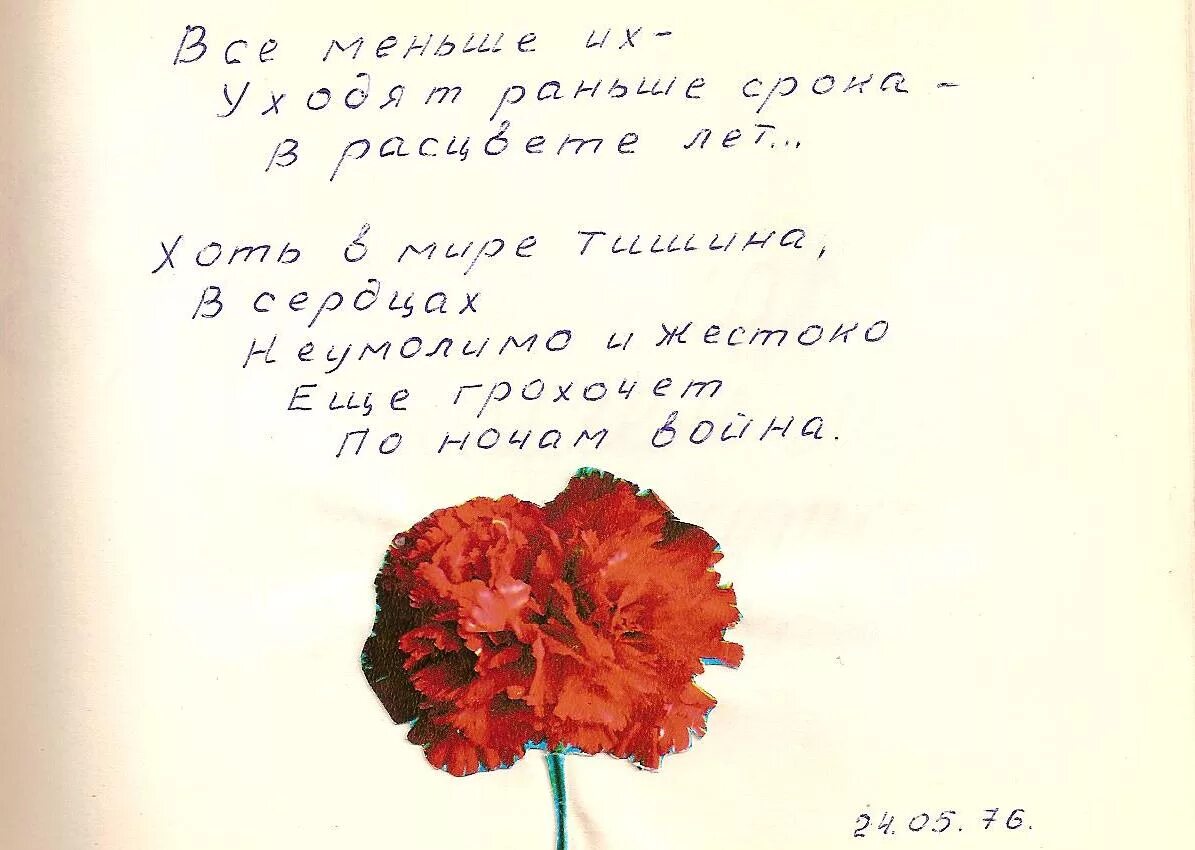 Все меньше их-
Уходят раньше срока -
В расцвете лет...
Хоть в мире тишина,
В сердцах
Неумолимо и жестоко
Еще грохочет
По ночам война.
24.05.76.